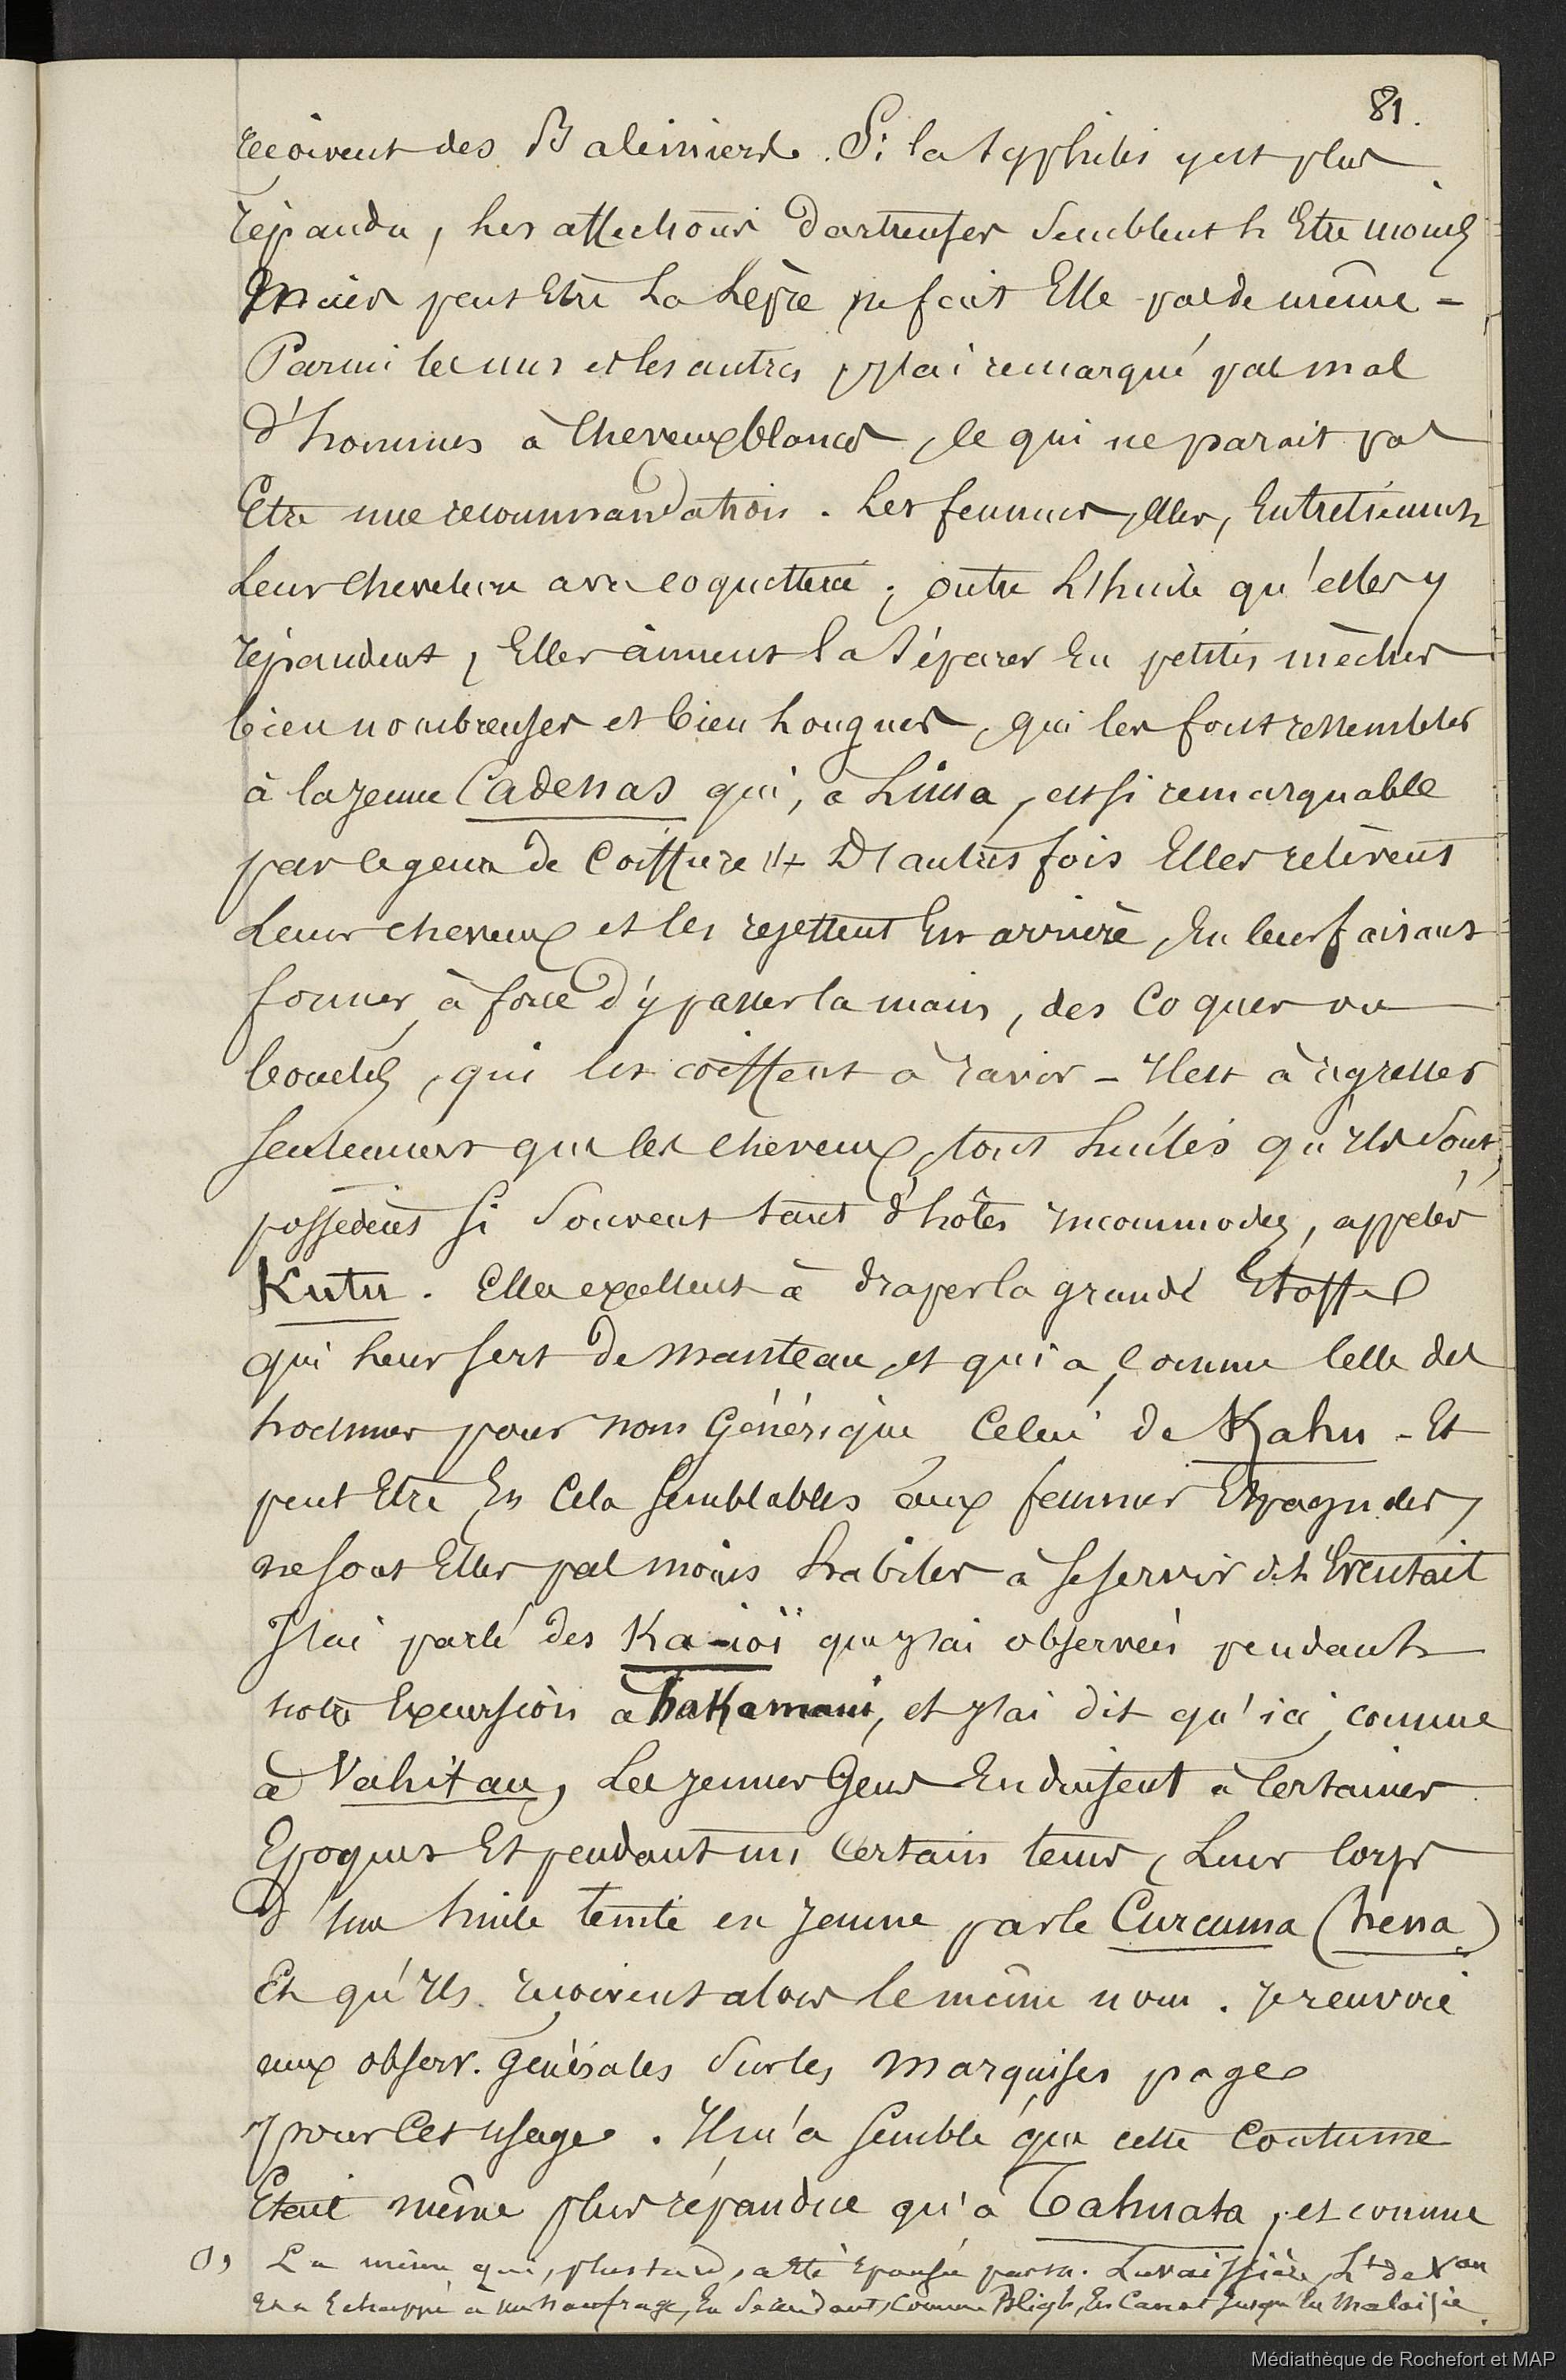 81.
reçoivent des Baleiniers. Si la Syphilis y est plus
répandu, les affections Dartreuses Semblent l'Etre moins
Mais peut Etre La Lèpre ne fait Elle pas de même -
Parmi les uns et les autres, j'ai remarqué pas mal
d'hommes à Cheveux blancs, Ce qui ne parait pas
Etre une recommandation. Les femmes, elles, Entretiennent
Leur Chevelure avec coquetterie; outre L'huile qu'elles y
répandent, Elles aiment la Séparer En petites mèches
bien nombreuses et bien Longues, qui les font ressembler
à la jeune Cadenas qui, à Lima, est si remarquable
par ce genre de Coiffure. D'autres fois Elles relèvent
Leurs cheveux et les rejettent En arrière, En leur faisant
former, à force d'y passer la main, des Coques ou
boucles, qui les coiffent à ravir - Il est à regretter
seulement que les Cheveux, tout huilés qu'ils sont,
possèdent si Souvent tant d'hôtes incommodes, appelés
Kutu. Elles excellent à draper la grande Etoffe
qui Leur sert de manteau, et qui a, Comme Celle des
hommes pour nom Générique Celui de Kahu - Et
peut Etre En Cela semblables aux femmes Espagnoles,
ne sont Elles pas moins habiles à se servir de l'Eventail
J'ai parlé des Ka-ioï que j'ai observés pendant
notre Excursion à Hakamaui, et j'ai dit qu'ici, comme
à Vahitau, Les jeunes Gens Enduisent à Certaines
Epoques Et pendant un Certain tems, Leur Corps
d'une huile teinte en Jaune par le Curcuma (hena)
Et qu'ils reçoivent alors le même nom. Je renvoie
aux observ. Générales Sur les Marquises page
pour Cet usage. Il m'a semblé que cette Coutume
Etait même plus répandue qu'à Tahuata, et comme
(1) La même qui, plus tard, a Eté Epousée par M. Lavaissière, Lt de Vau
et a Echappé à un naufrage, En Descendant, Comme Bligh, En Canot jusqu'En Malaisie.
Médiathèque de Rochefort et MAP